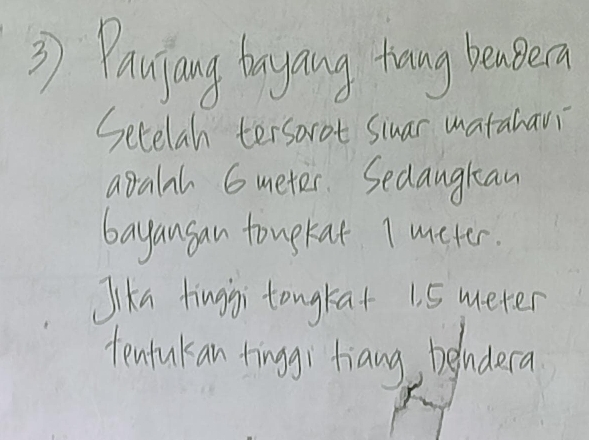 3) Panjang bayang tiang bendera
Setelah tersorot sinar matahari
adalah 6 meter. Sedangkan
bayangan tongkat 1 meter.
Jika tinggi tongkat 1,5 meter
tentukan tinggi tiang bendera.